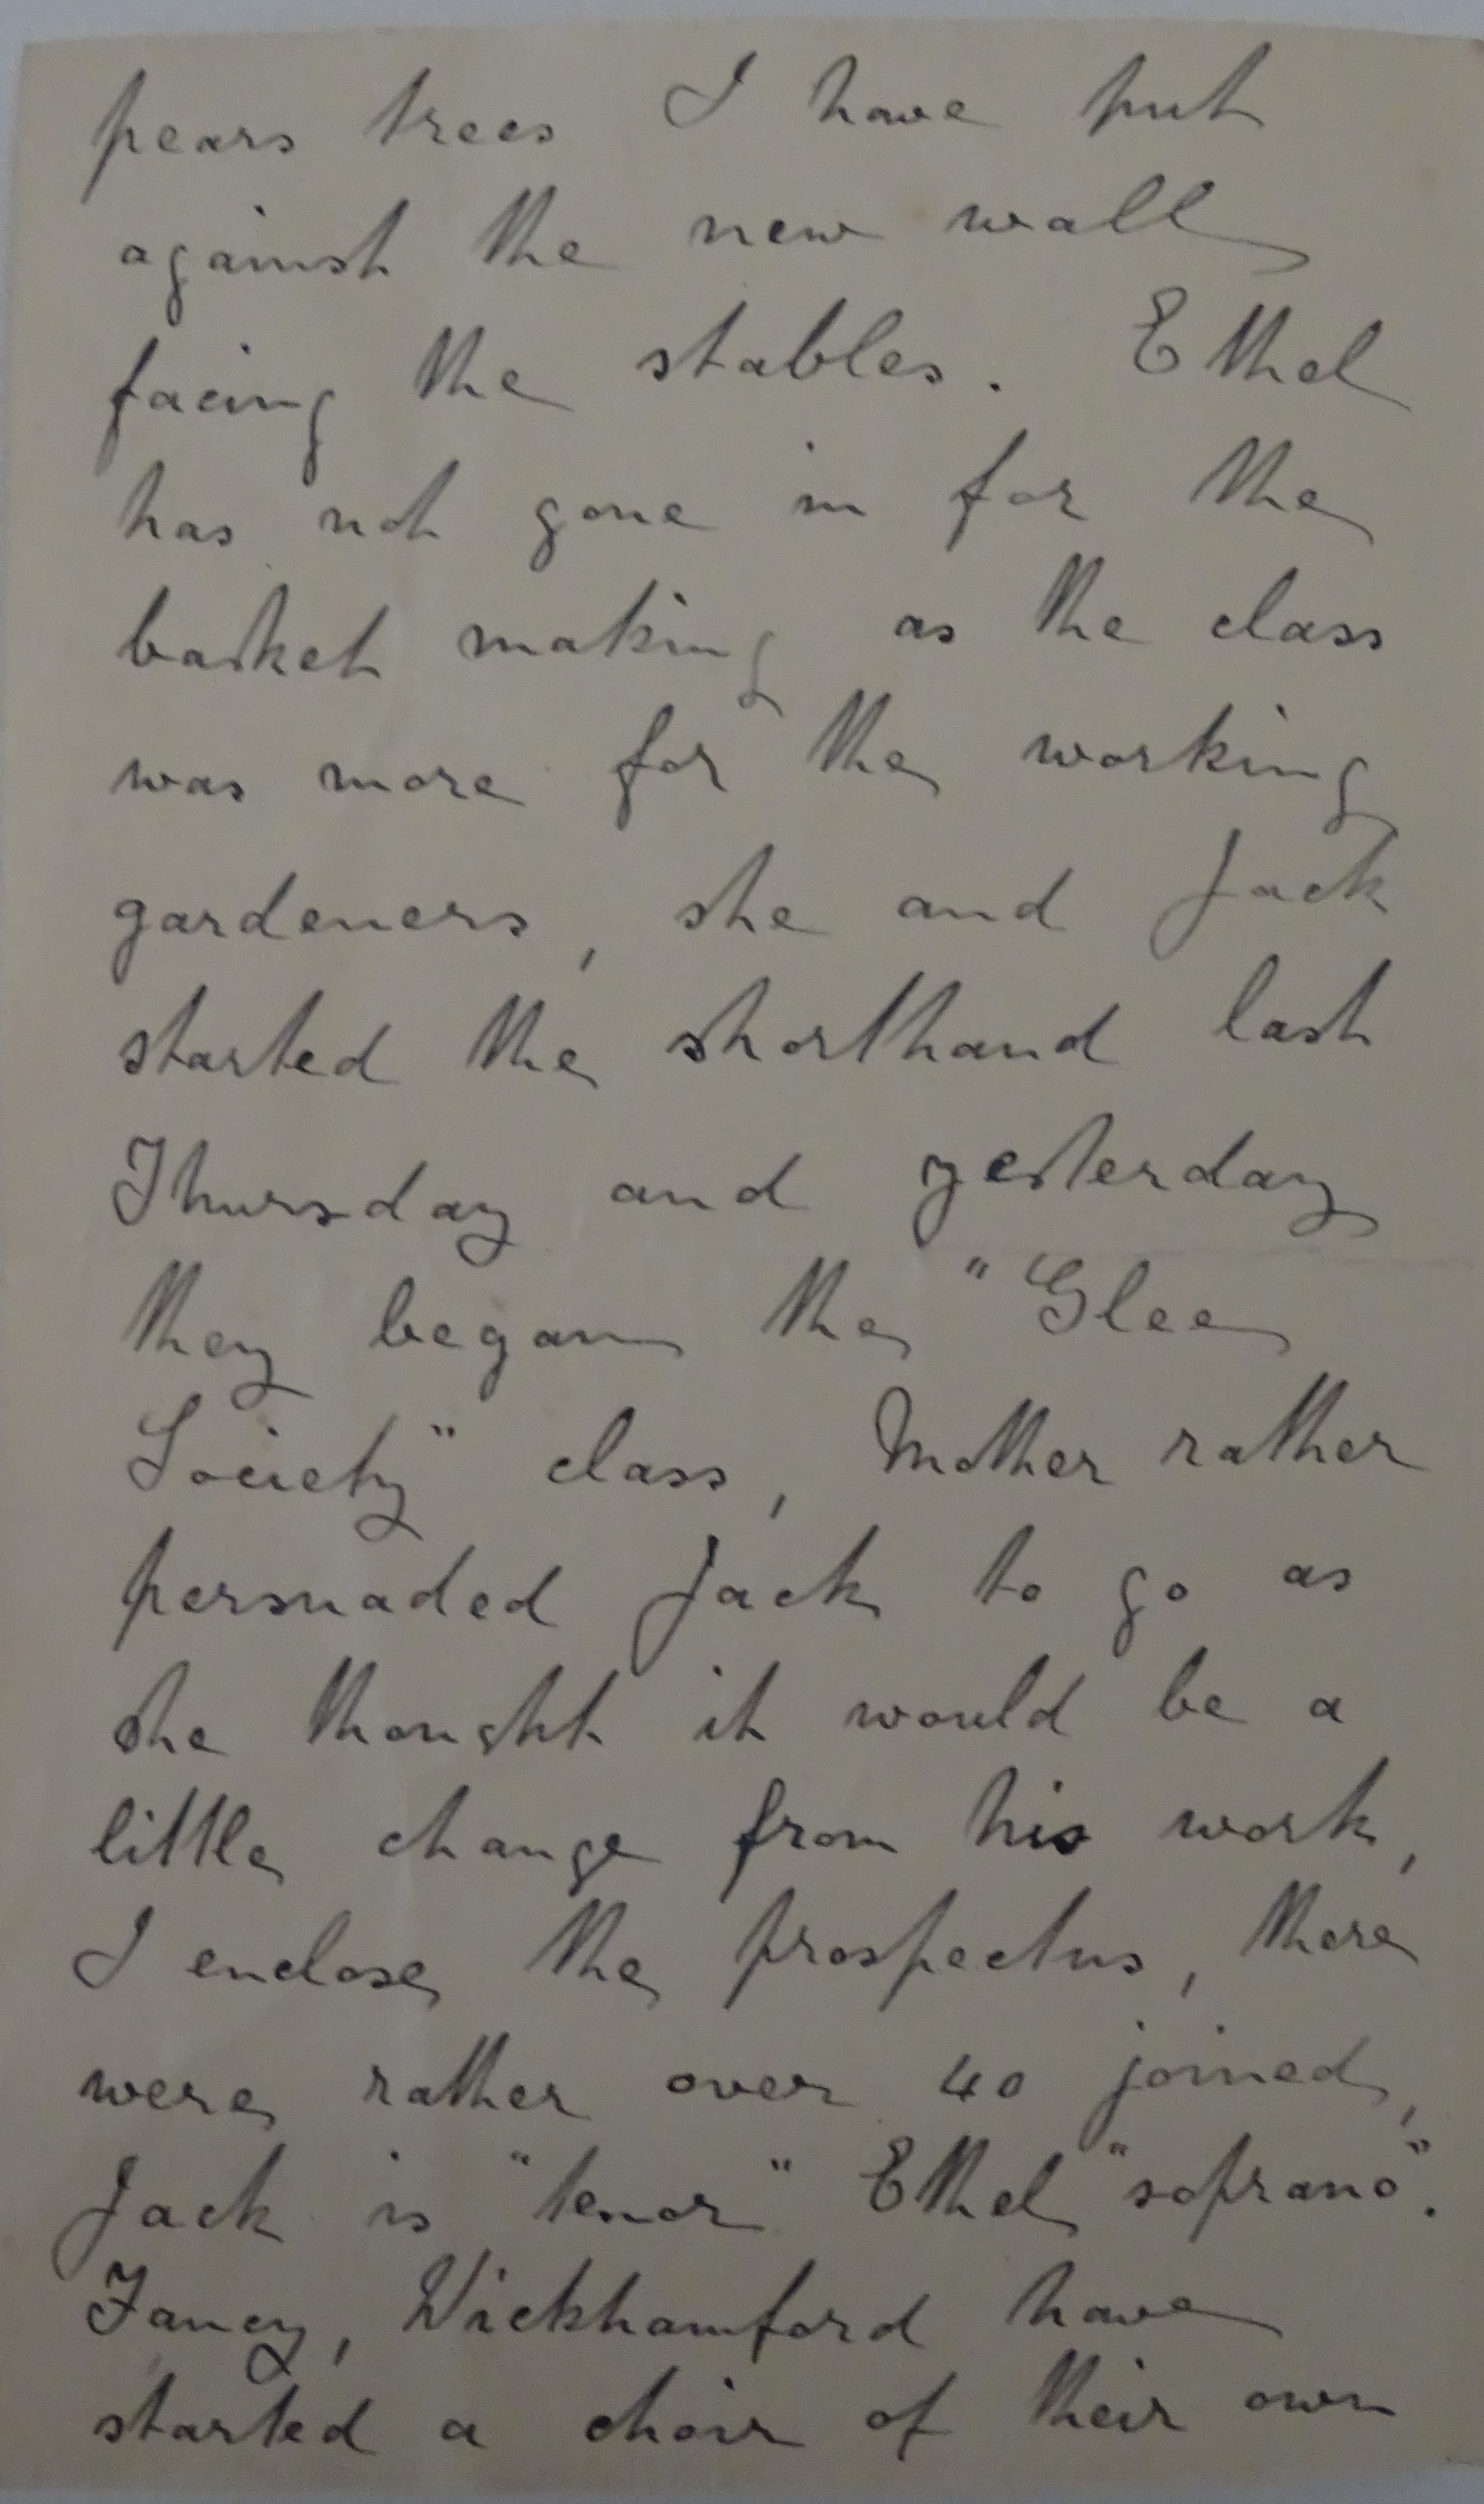 pears trees I have put
against the new wall
facing the stables. Ethel
has not gone in for the
basket making as the class
was more for the working
gardeners, she and Jack
started the shorthand last
Thursday and yesterday
they began the "Glee
Society" class, Mother rather
persuaded Jack to go as
she thought it would be a
little change from his work,
I enclose the prospectus, there
were rather over 40 joined,
Jack is "tenor" Ethel "soprano".
Fancy, Wickhamford have
started a choir of their own